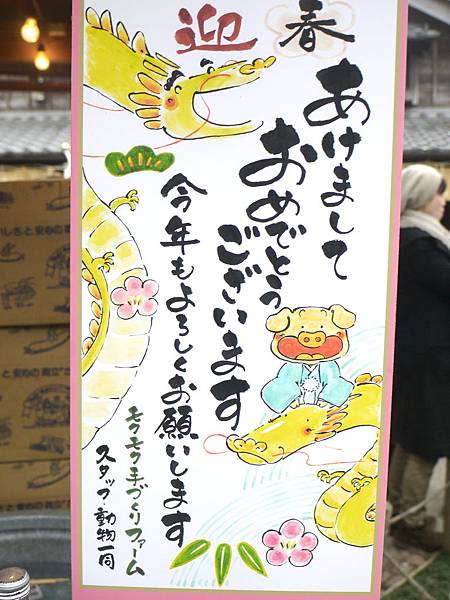 迎春
あけまして
おめでとう
ございます
今年もよろしくお願いします
モクモク手づくりファーム
スタッフ・動物一同